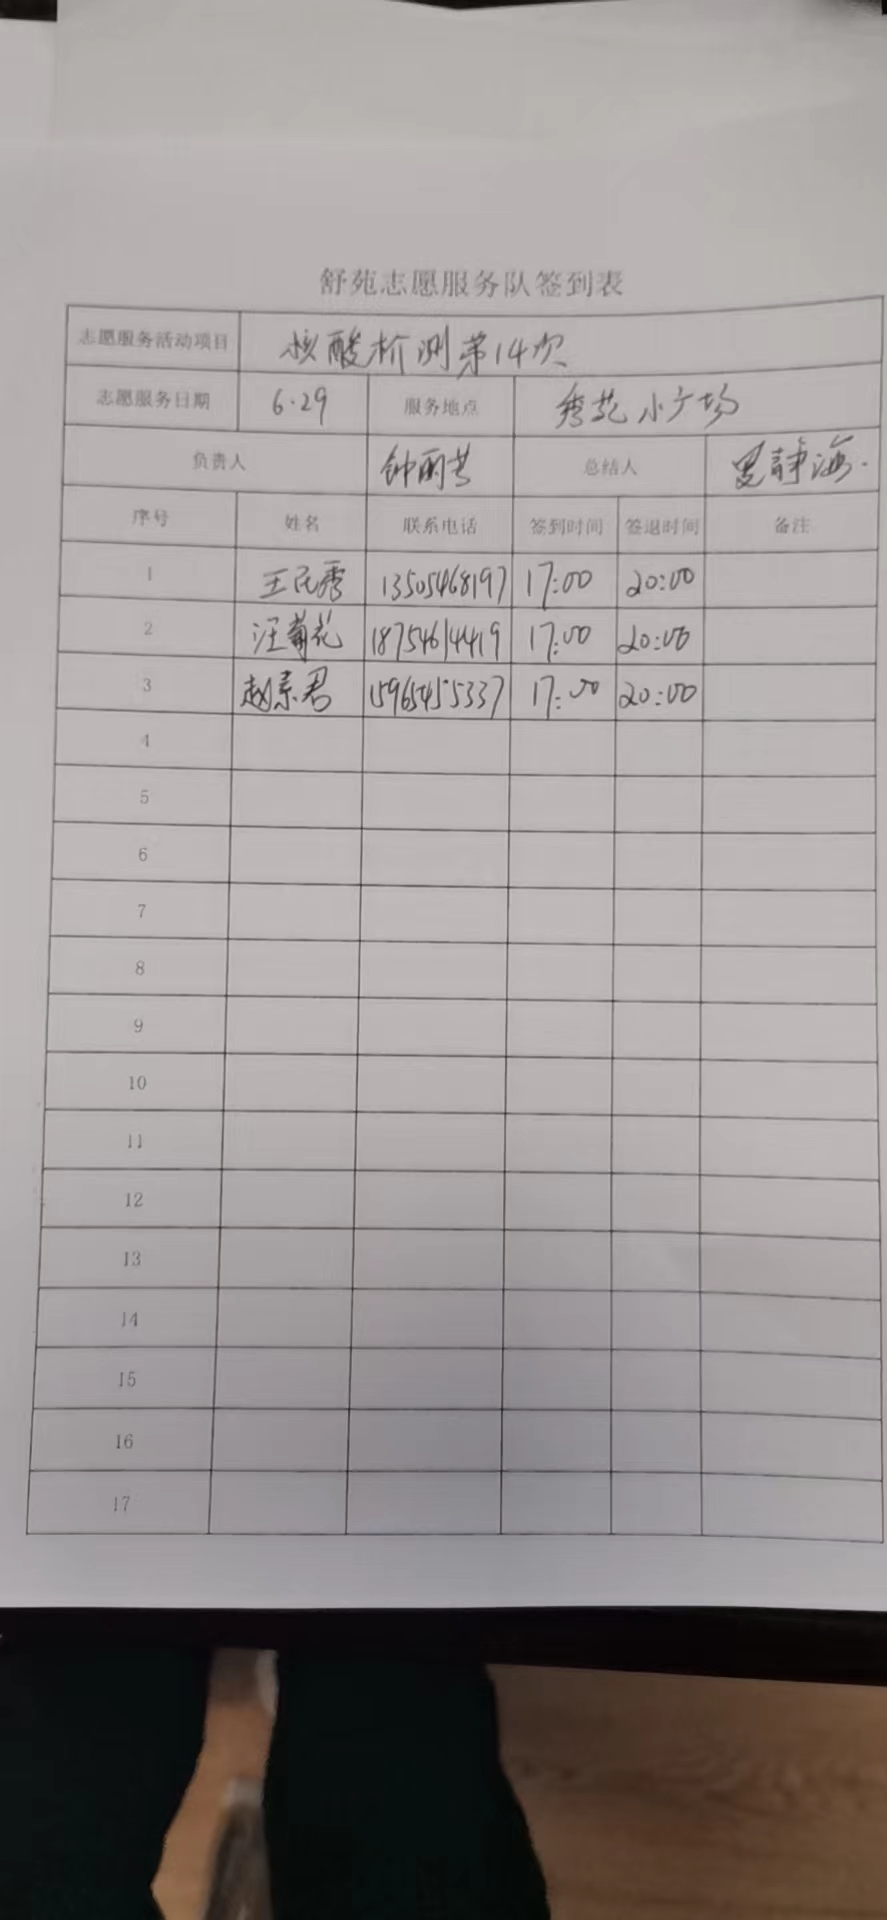 舒苑志愿服务队签到表
志愿服务活动项目 核酸检测第14次
志愿服务日期 6.29 服务地点 秀苑小广场
负责人 钟丽芸 总结人 夏静海.
序号 姓名 联系电话 签到时间 签退时间 备注
1 王民秀 13505468197 17:00 20:00
2 汪菊花 18754614419 17:00 20:00
3 赵素君 15965455337 17:00 20:00
4
5
6
7
8
9
10
11
12
13
14
15
16
17